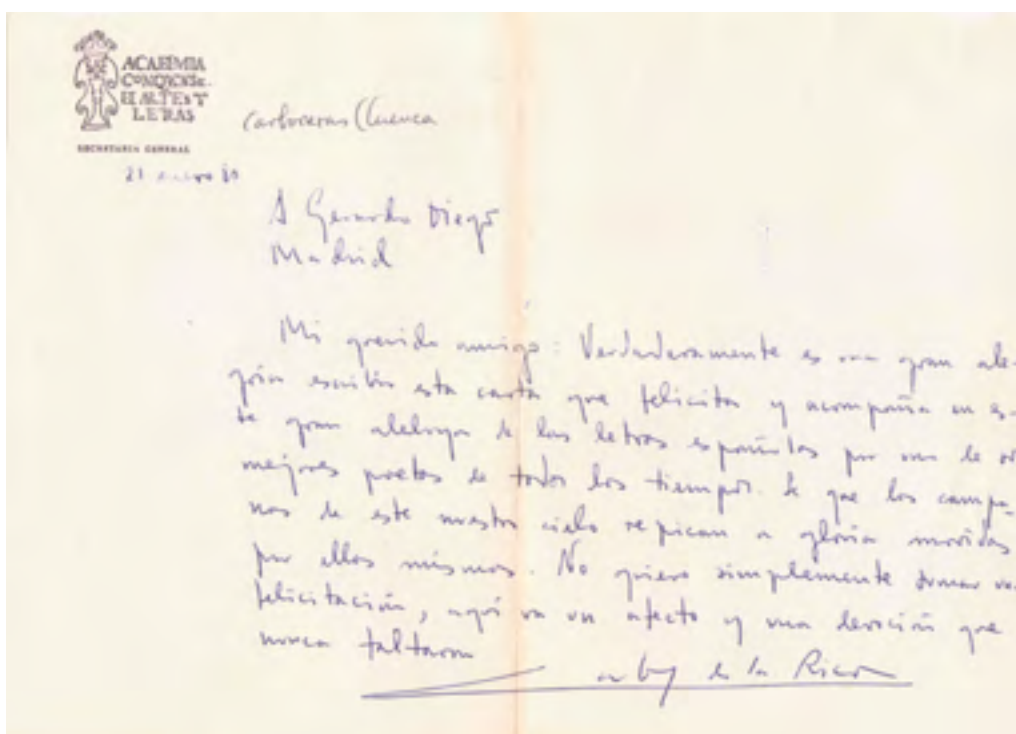 ACADEMIA
CONQUENSE
DE ARTES Y
LETRAS
SECRETARIA GENERAL
Carboneras (Cuenca
21 enero 80
A Gerardo Diego
Madrid
Mi querido amigo: Verdaderamente es una gran ale-
gría escribir esta carta que felicita y acompaña en es-
te gran aleluya de las letras españolas por uno de
mejores poetas de todos los tiempos. Sé que las campa-
nas de este nuestro cielo repican a gloria movidas
por ellas mismas. No quiero simplemente sumar
felicitación, aquí va un afecto y una devoción que
nunca faltaron
de la Rica